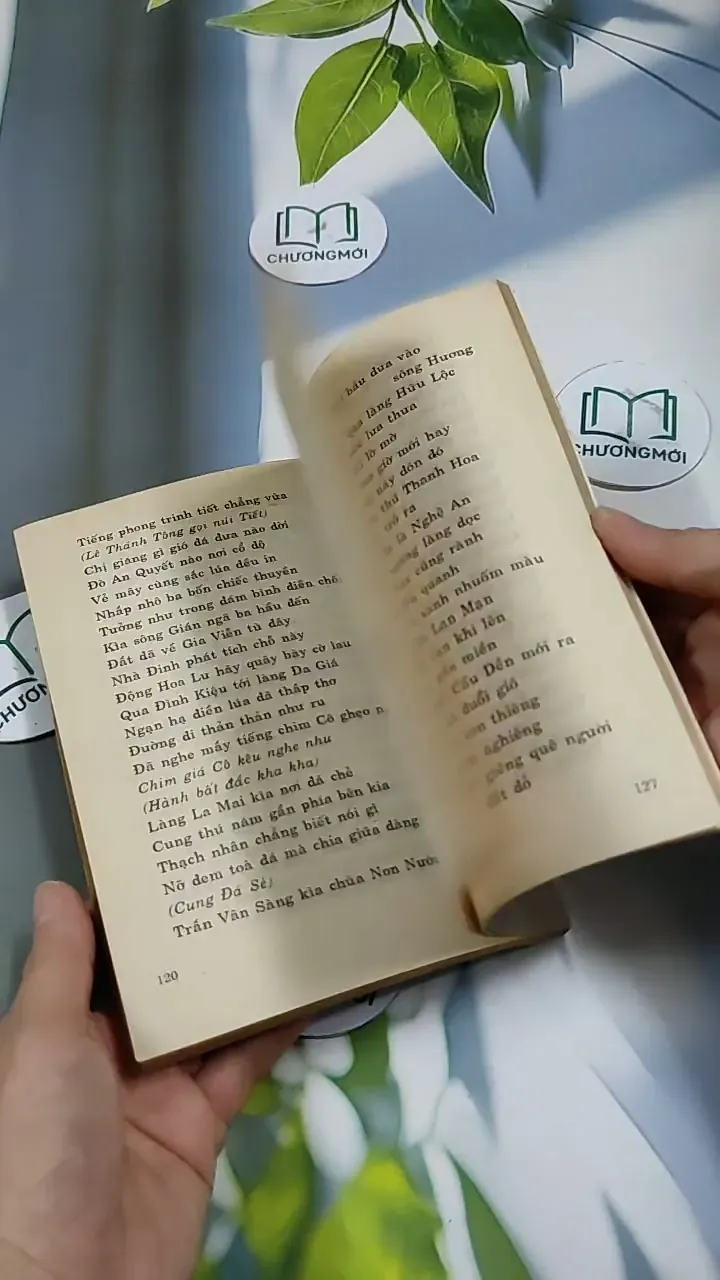 CHƯƠNGMỚI
CHƯƠNGMỚI
CHƯƠN
Tiếng phong trinh tiết chẳng vừa
(Lê Thánh Tông gọi núi Tiết)
Chị giăng gì gió đá đưa nào dời
Đò An Quyết nào nơi cổ độ
Vẻ mây cùng sắc lúa đều in
Nhấp nhô ba bốn chiếc thuyền
Tưởng như trong đám bình điền chế
Kìa sông Gián ngã ba hầu đến
Đất đã về Gia Viễn từ đây
Nhà Đinh phát tích chỗ này
Động Hoa Lư hãy quây bày cờ lau
Qua Đình Kiệu tới làng Đa Giá
Ngạn hạ điền lúa đã thấp thơ
Đường đi thản thản như ru
Đã nghe mấy tiếng chim Cô ghẹo n
Chim giá Cô kêu nghe như
(Hành bất đắc kha kha)
Làng La Mai kia nơi đá chẻ
Cung thú năm gần phía bên kia
Thạch nhân chẳng biết nói gì
Nỡ đem toà đá mà chia giữa dàng
(Cung Đá Sẻ)
Trấn Vân Sàng kìa chùa Non Nước
120
bầu đưa vào
sông Hương
làng Hữu Lộc
lưa thưa
lờ mờ
giờ mới hay
này đón đó
thú Thanh Hoa
trỏ ra
là Nghệ An
làng dọc
cũng rành
quanh
xanh nhuốm màu
Lan Mạn
khi lên
miền
Cầu Dền mới ra
đuổi gió
thiêng
nghiêng
giêng quê người
đất đỏ
127